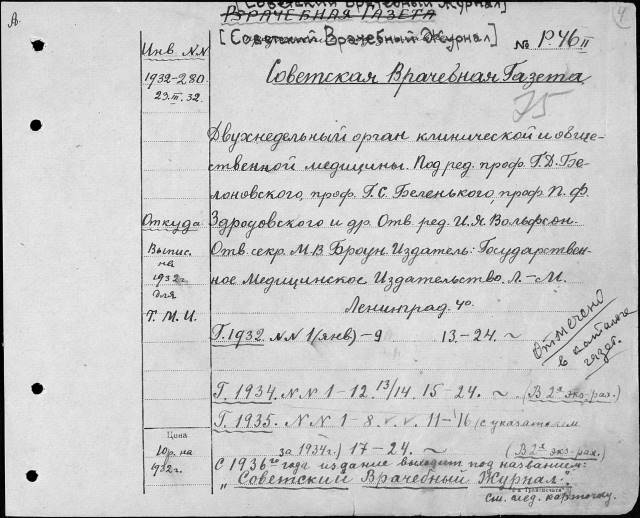 А.
[Советский Врачебный Журнал]
ВРАЧЕБНАЯ ГАЗЕТА
[Советский Врачебный Журнал]
4
№ Р.46 II
Инв. NN
1932-280.
29.III.32.
Советская Врачебная Газета
75
Двухнедельный орган клинической и обще-
ственной медицины. Под ред. проф. Г.Д. Бе-
лоновского, проф. Г.С. Беленького, проф. П. Ф.
Здродовского и др. Отв. ред. И.Я. Вольфсон.
Отв. секр. М.В. Броун. Издатель: Государствен-
ное Медицинское Издательство. Л.-М.
Ленинград. 4°.
Откуда
Выпис.
на
1932г.
для
Т. М. И.
Г. 1932. NN 1(янв)-9 13-24. ~
Отмечено
в каталоге
газет.
Г. 1934. NN 1-12. 13/14. 15-24. ~ (В 2х экз-рах.)
Г. 1935. NN 1-8. v. v. 11-16 (с указателем
за 1934г.) 17-24. ~ (В 2х экз-рах.)
С 1936го года издание выходит под названием:
"Советский Врачебный Журнал".
См. след. карточку.
Цена
10р. на
1932г.